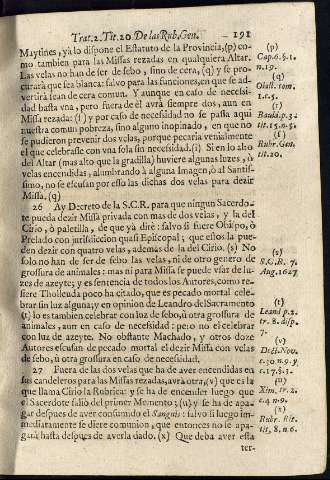 Trat.2. Tit.20. De las Rub. Gen. 191
Maytines, yà lo dispone el Estatuto de la Provincia, (p) co-
mo tambien para las Missas rezadas en qualquiera Altar.
Las velas no han de ser de sebo, sino de cera, (q) y se pro-
curará que sea blanca: salvo para las funciones, en que se ad-
vertirà sean de cera comun. Y aunque en caso de necessi-
dad basta vna, pero fuera de èl avrà siempre dos, aun en
Missa rezada: (ſ) y por caso de necessidad no se passa aqui
nuestra comun pobreza, sino alguno inopinado, en que no
se pudieron prevenir dos velas, porque pecaria venialmente
el que celebrasse con vna sola sin necessidad. (i) Si en lo alto
del Altar (mas alto que la gradilla) huviere algunas luzes, ò
velas encendidas, alumbrando à alguna Imagen, ò al Santis-
simo, no se escusan por esso las dichas dos velas para dezir
Missa, (q)
26 Ay Decreto de la S.C.R. para que ningun Sacerdo-
te pueda dezir Missa privada con mas de dos velas, y la del
Cirio, ò paletilla, de que yà dirè: salvo si fuere Obispo, ò
Prelado con jurisdiccion quasi Episcopal; que estos la pue-
den dezir con quatro velas, ademàs de la del Cirio. (s) No
solo no han de ser de sebo las velas, ni de otro genero de
grossura de animales: mas ni para Missa se puede vsar de lu-
zes de azeyte; y es sentencia de todos los Autores, como re-
fiere Tholeuda poco ha citado, que es pecado mortal cele-
brar sin luz alguna; y en opinion de Leandro del Sacramento
(t) lo es tambien celebrar con luz de sebo, ù otra grossura de
animales, aun en caso de necessidad: pero no el celebrar
con luz de azeyte. No obstante Machado, y otros doze
Autores escusan de pecado mortal el dezir Missa con velas
de sebo, ù otra grossura en caso de necessidad.
27 Fuera de las dos velas que ha de aver encendidas en
sus candeleros para las Missas rezadas, avrà otra, (v) que es la
que llama Cirio la Rubrica: y se ha de encender luego que
el Sacerdote saliò del primer Memento; (u) y se ha de apa-
gar despues de aver consumido el Sanguis: salvo si luego im-
mediatamente se diere comunion, que entonces no se apa-
garà hasta despues de averla dado. (x) Que deba aver esta
ter-
(p)
Cap.6.§.1.
n.19.
(q)
t.1.5.
(r)
Bauld.p.3.
tit.15.n.5.
(ſ)
Rubr. Gen.
tit.20.
(s)
S.C.R. 7.
Aug.1627
(t)
Leand p.2.
tr.8. disp.
7.
(v)
c.30 n.9. y
c.17.§.3.
(u)
Xim. tr.2.
c.4 n.9.
(x)
Rubr. Rit.
tit.8.n.6.